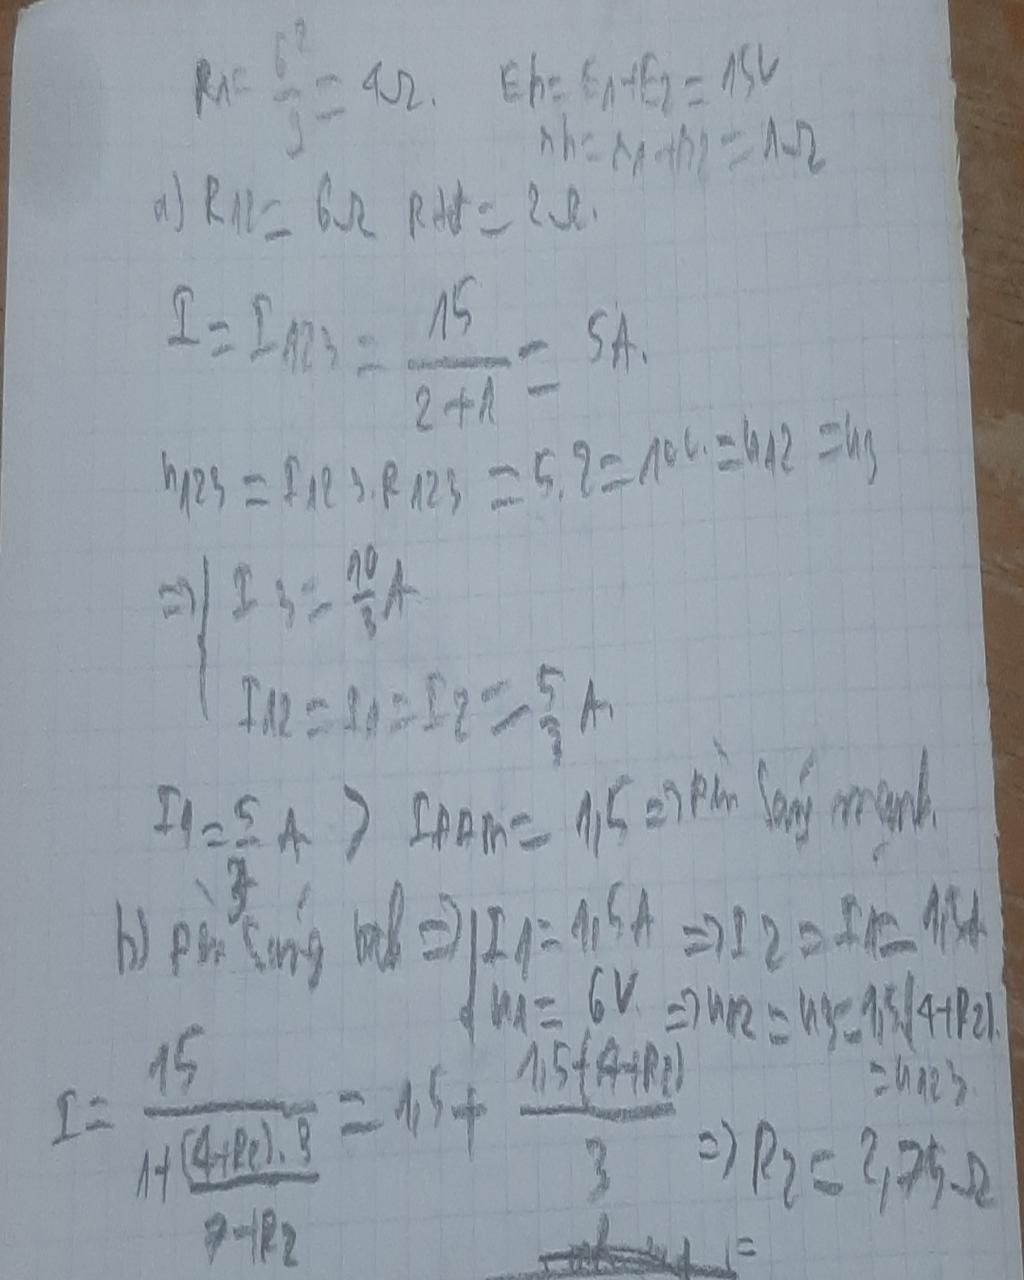 R1 = 6²/9 = 4Ω. Eb = E1+E2 = 15V
rb = r1+r2 = 1Ω
a) R12 = 6Ω Rtđ = 2Ω.
I = I123 = 15/(2+1) = 5A.
U123 = I123.R123 = 5.2 = 10V. = U12 = U3
=> I3 = 10/3 A
I12 = I1 = I2 = 5/3 A
I1 = 5/3 A > IĐĐM = 1,5 => đèn sáng mạnh.
b) đèn sáng bth => I1 = 1,5A => I2 = I1 = 1,5A
U1 = 6V. => U12 = U3 = 1,5(4+R2).
= U123
I = 15/(1+(4+R2).3/(7+R2)) = 1,5 + 1,5(4+R2)/3 => R2 = 2,75Ω
=